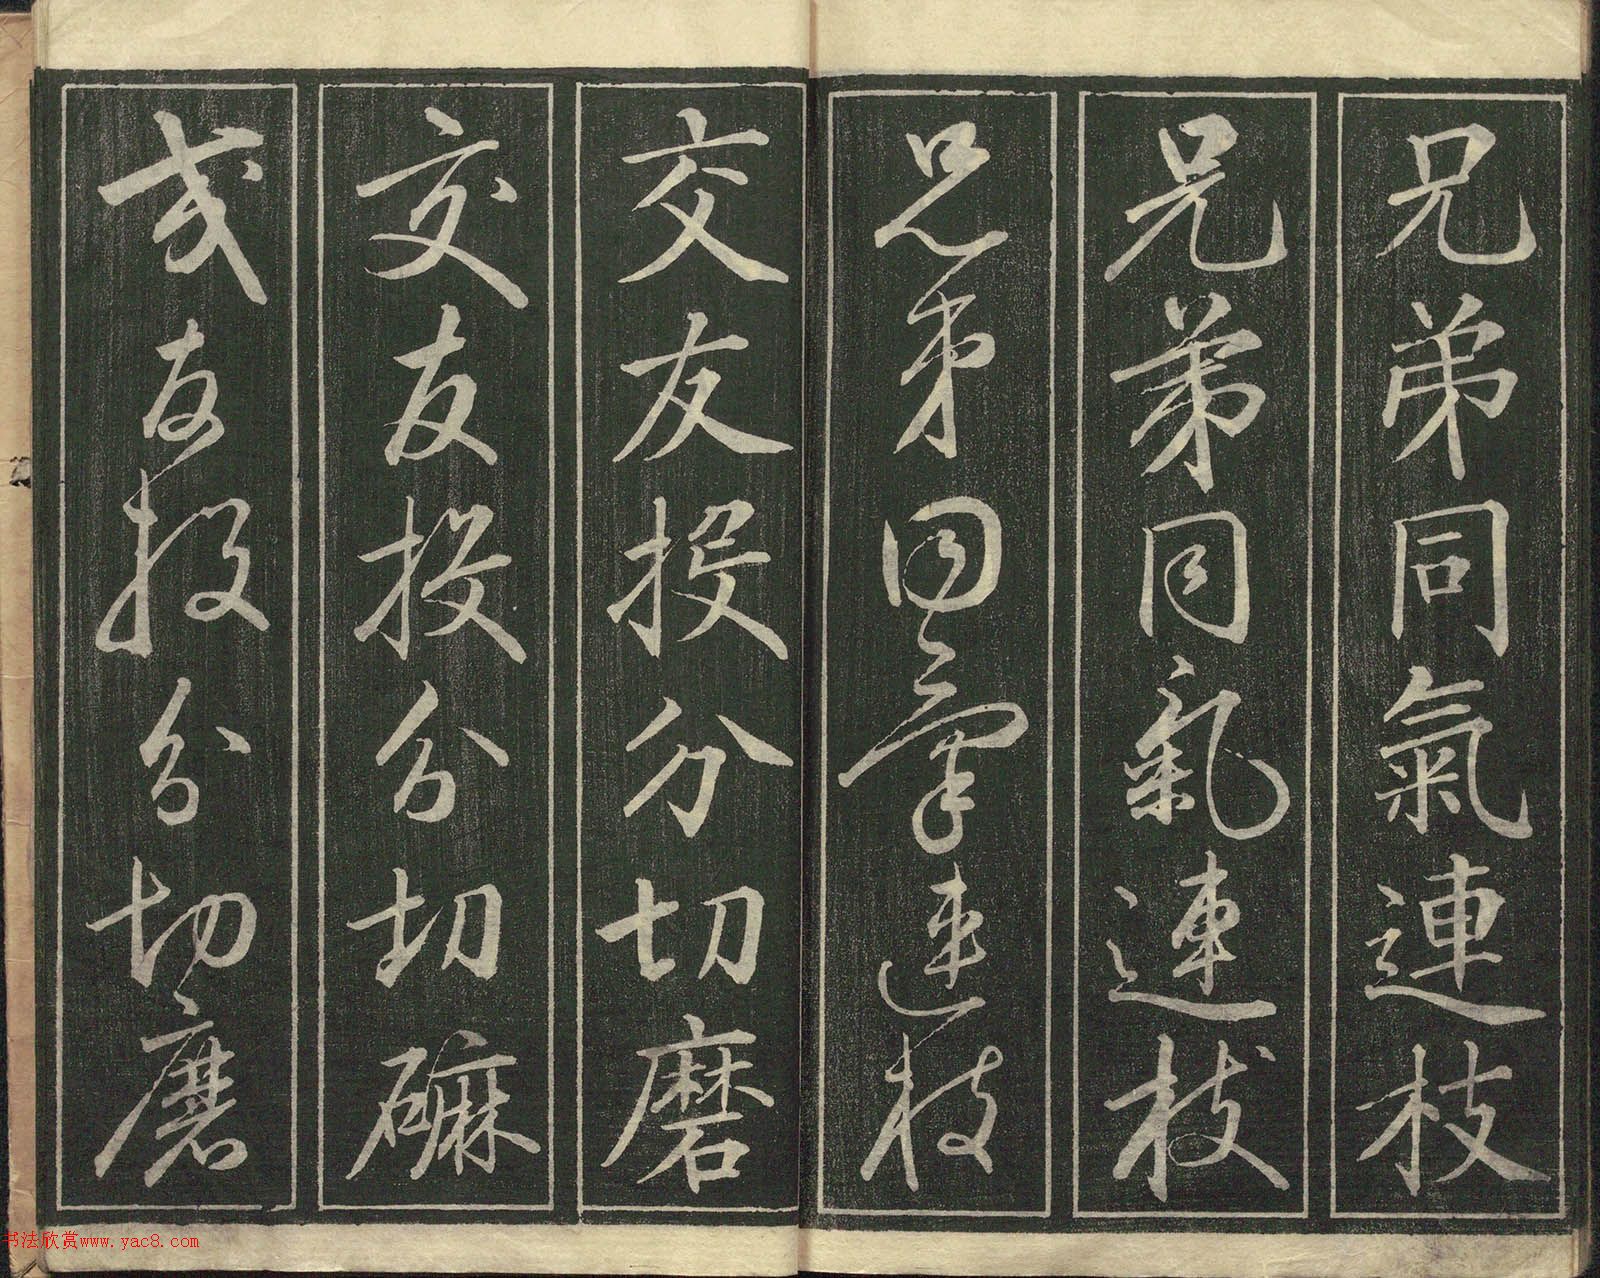 兄弟同氣連枝
兄弟同氣連枝
兄弟同氣連枝
交友投分切磨
交友投分切䃺
交友投分切磨
书法欣赏www.yac8.com